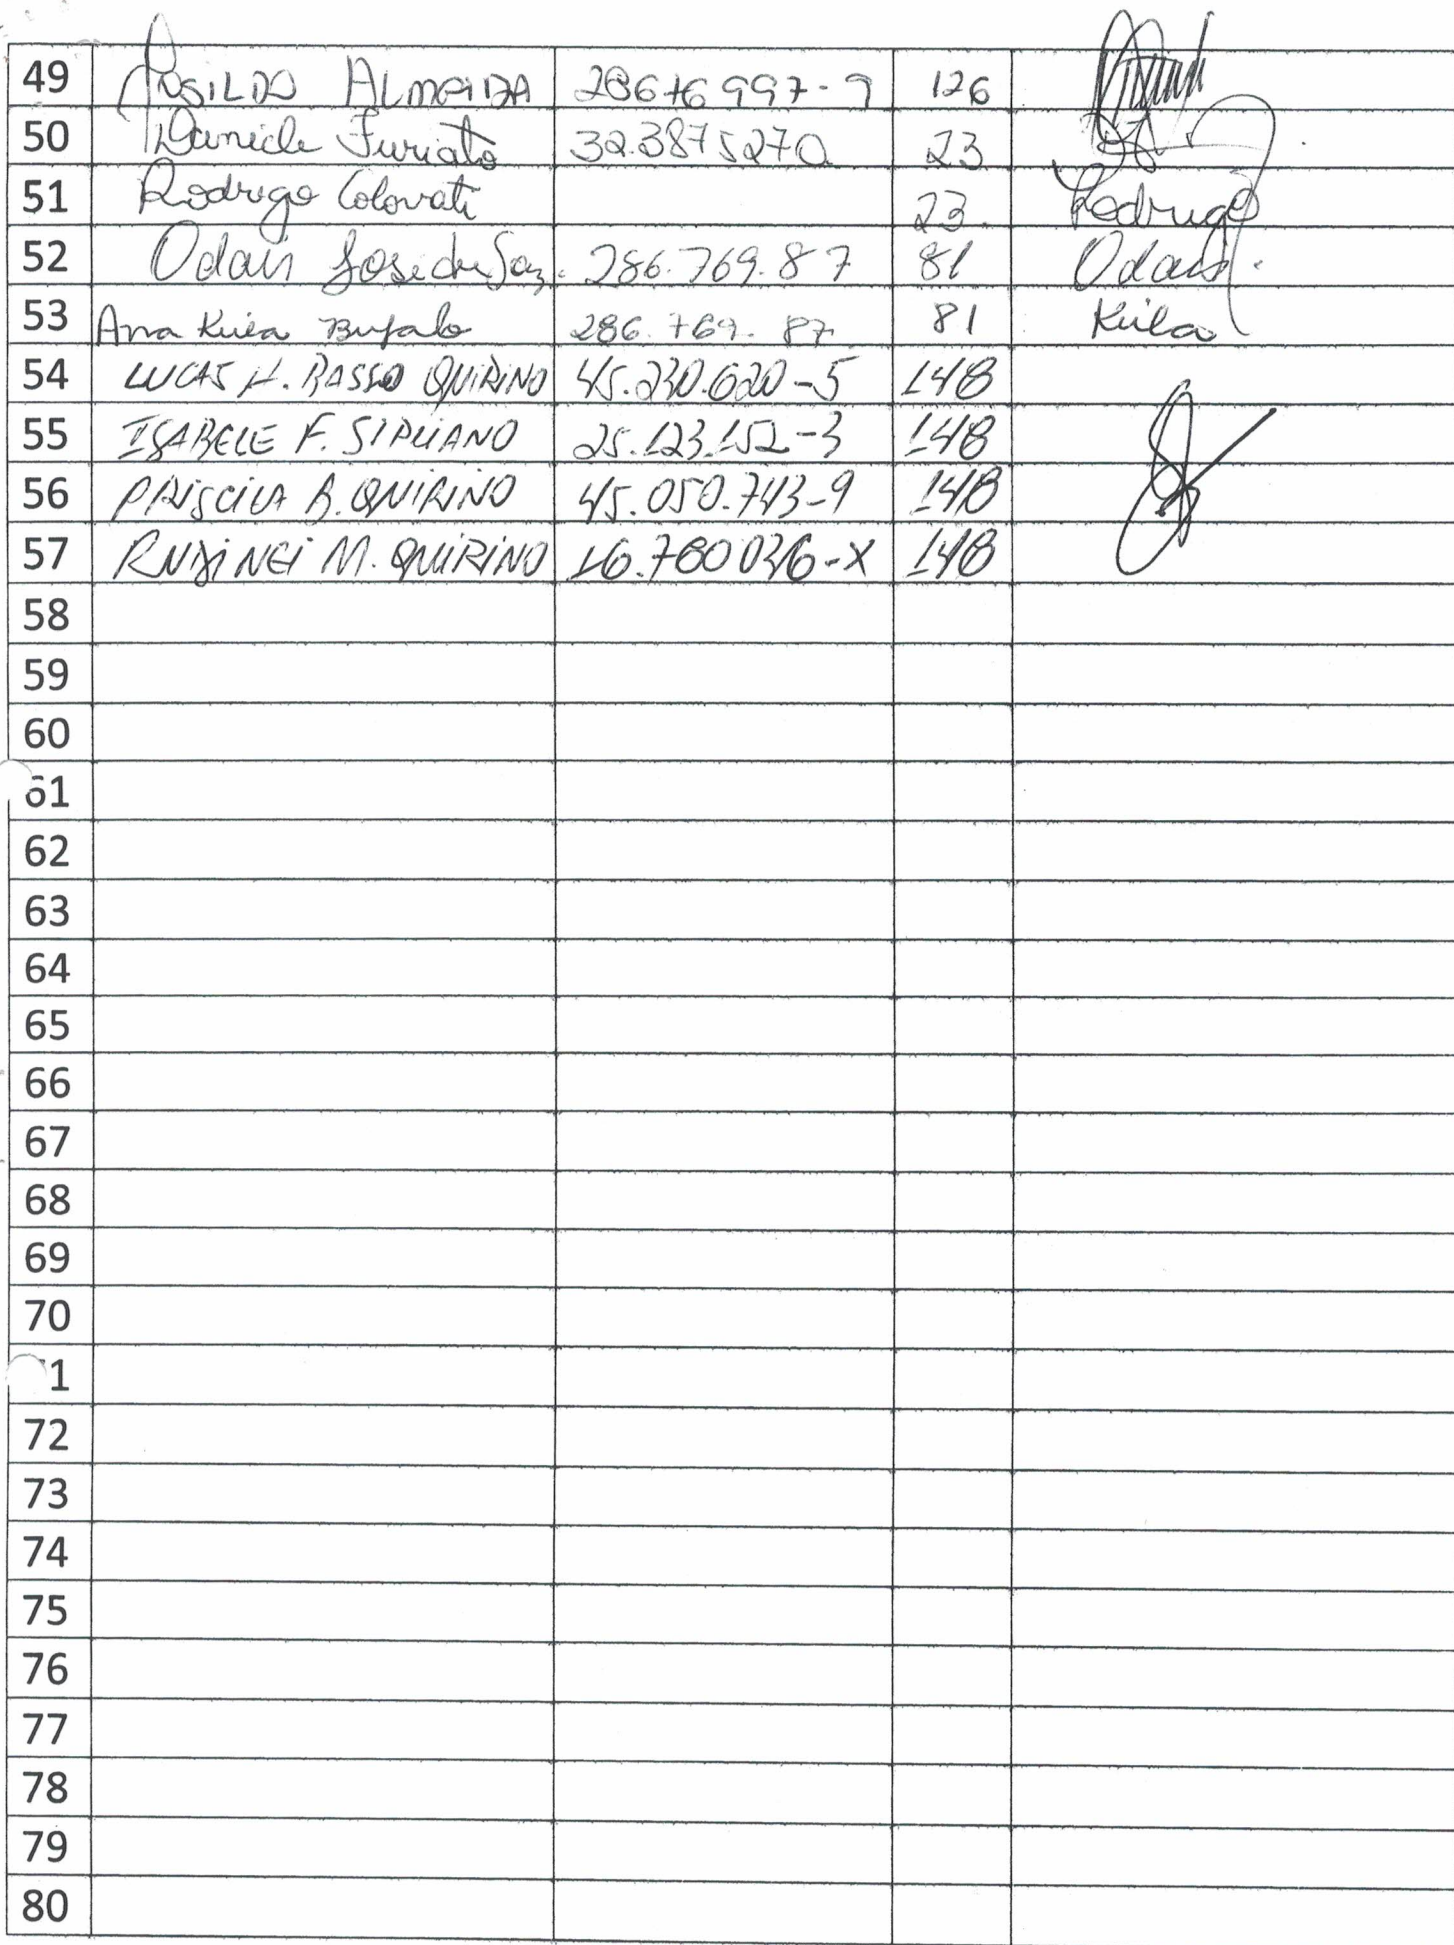 49 ALMEIDA 28676997-9 126
50 Daniele Furiato 32.3875270 23
51 Rodrigo Colovati 23 Rodrigo
52 Odair José de 286.769.87 81 Odair
53 Ana Keila Bufalo 286.769.87 81 Keila
54 LUCAS H. BASSO QUIRINO 45.230.620-5 148
55 ISABELE F. 25.123.152-3 148
56 PRISCILA B. QUIRINO 45.050.743-9 148
57 RUDINEI M. QUIRINO 148
58
59
60
61
62
63
64
65
66
67
68
69
70
71
72
73
74
75
76
77
78
79
80